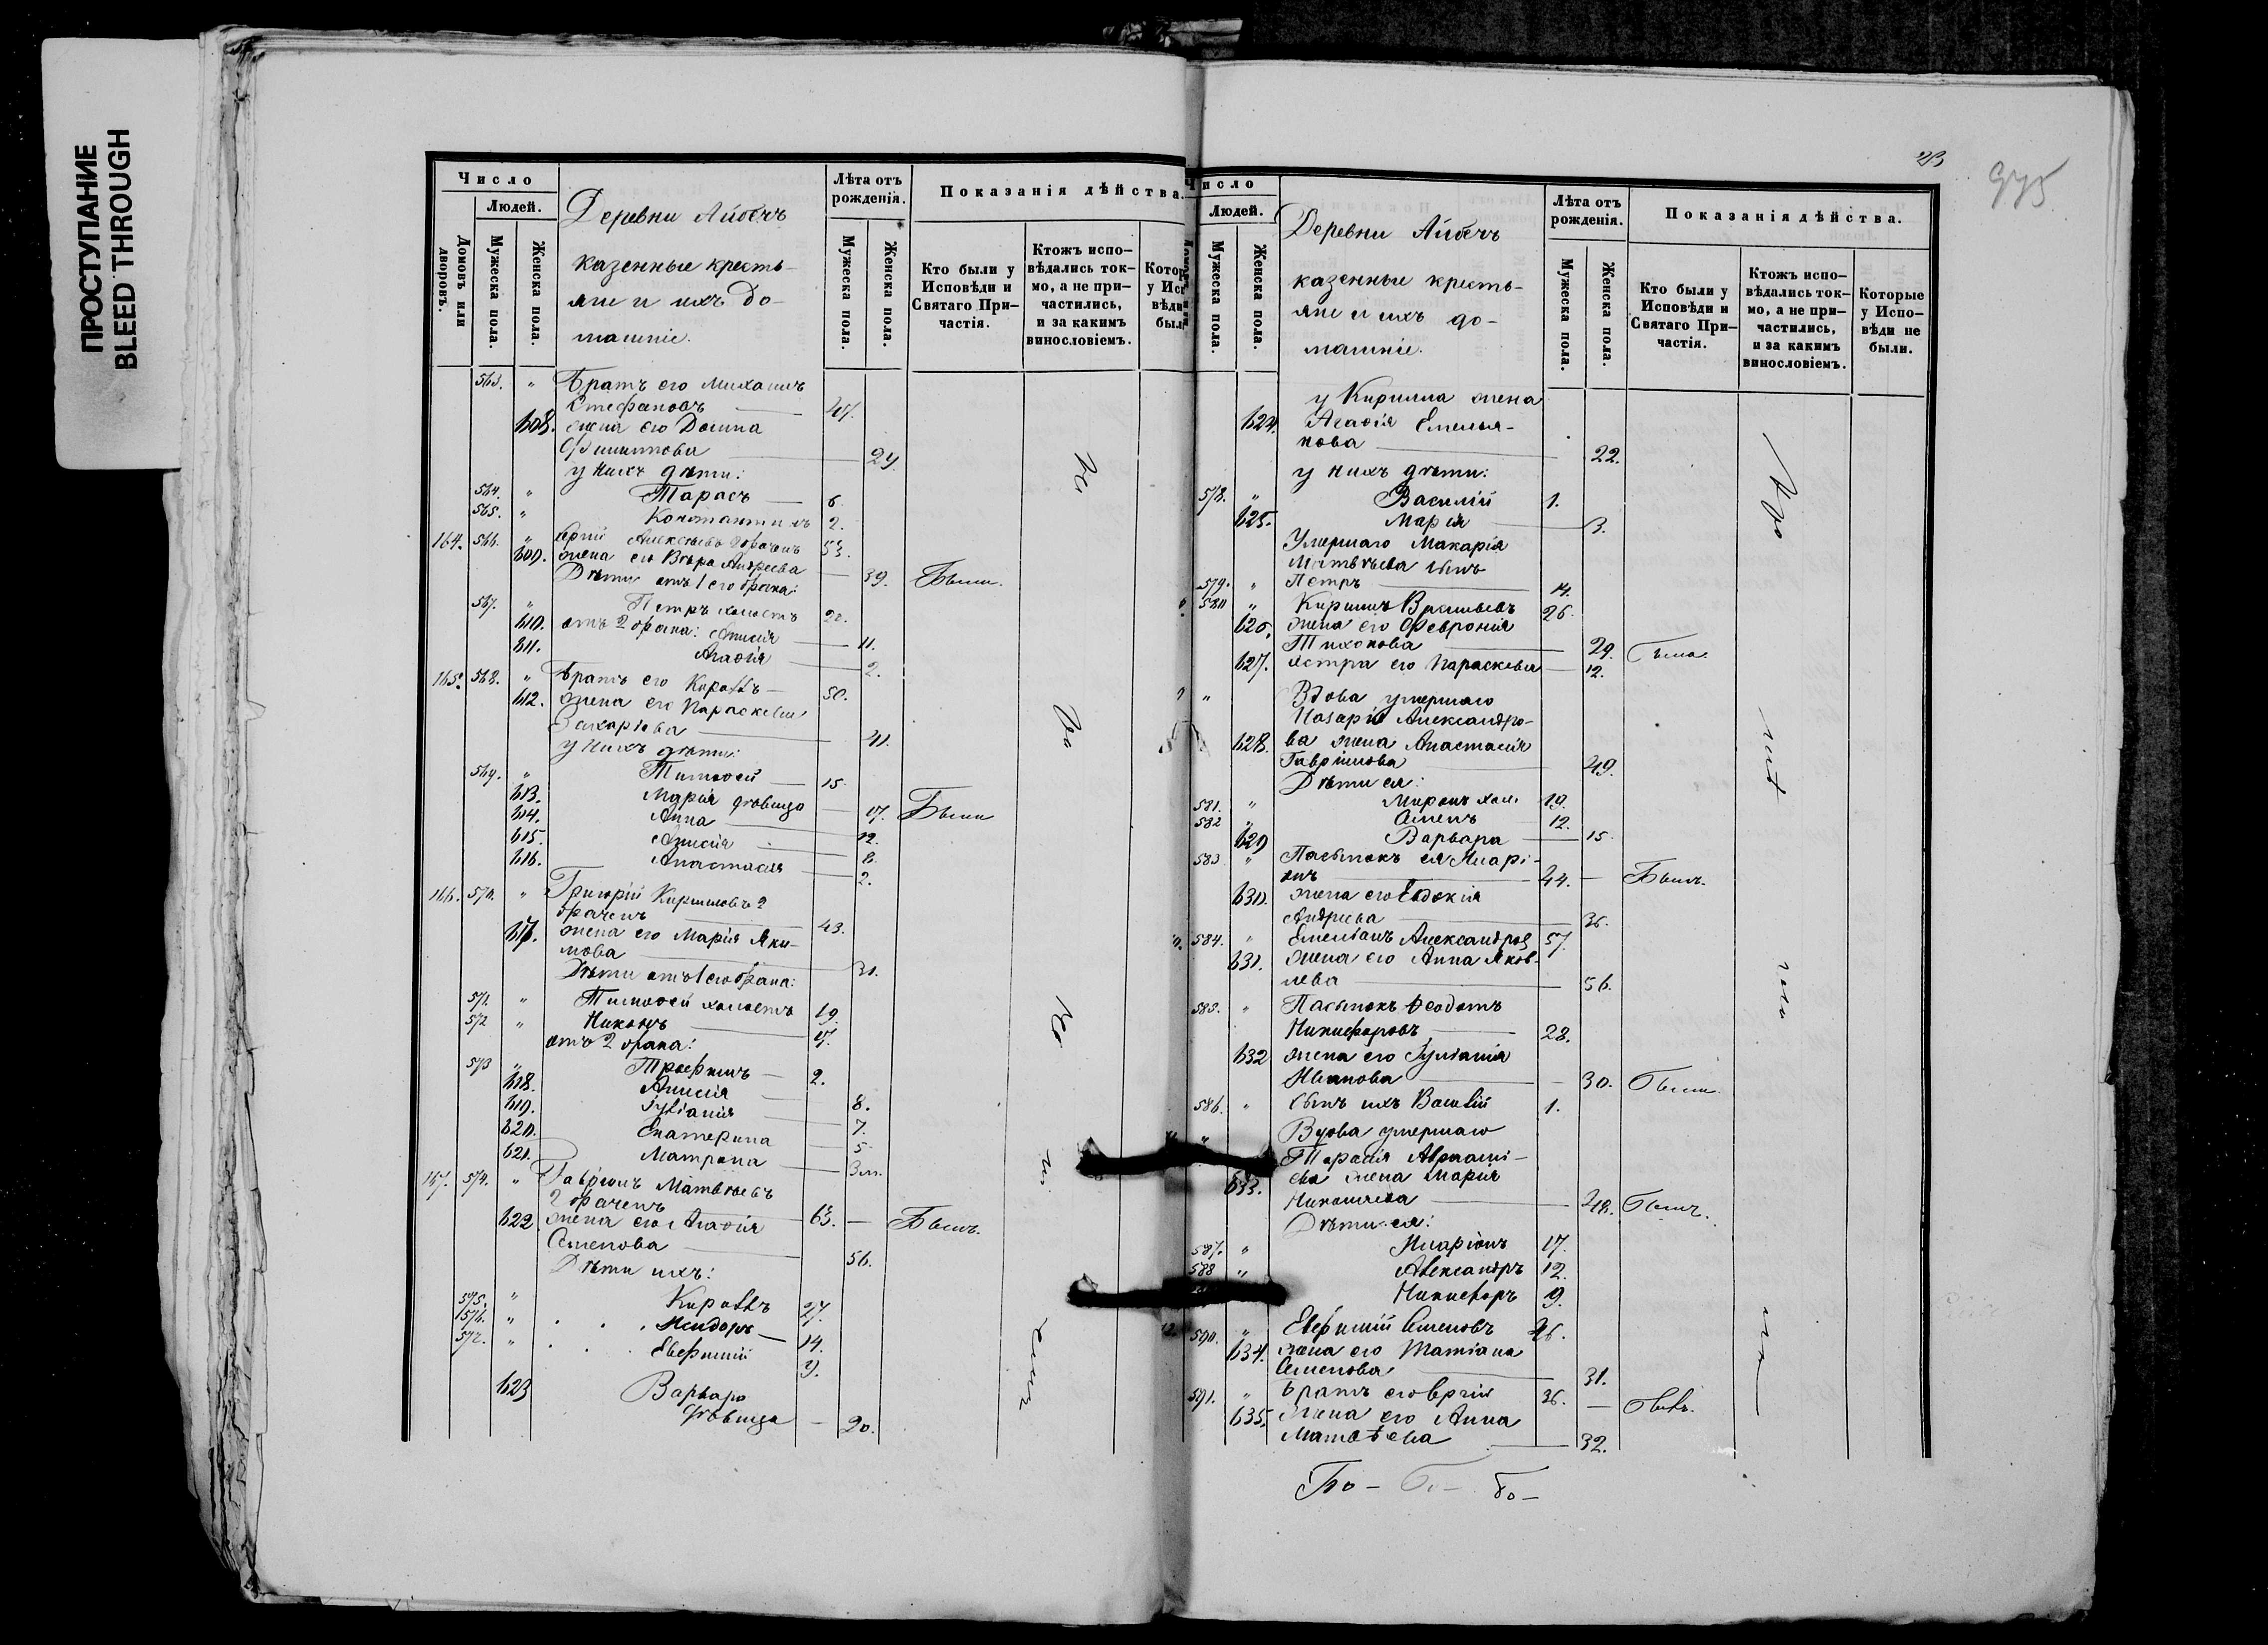 ПРОСТУПАНИЕ
BLEED THROUGH
Число
Людей.
Домовъ или дворовъ.
Мужеска пола.
Женска пола.
Деревни Айбечь
казенные кресть-
яне и ихъ до-
машніе.
Лѣта отъ рожденія.
Мужеска пола.
Женска пола.
Показанія дѣйства.
Кто были у Исповѣди и Святаго При-частія.
Ктожъ испо-вѣдались ток-мо, а не при-частились, и за какимъ винословіемъ.
563. " Братъ его Михаилъ
Стефановъ 27.
608. жена его Домна
Филиппова 29.
у нихъ дѣти:
564. " Тарасъ 6.
565. " Константинъ 2.
164. 566. " Алексѣевъ 2 браченъ 53.
609. жена его Вѣра Андреева 39. Были.
Дѣти отъ 1 его брака:
567. " Петръ холостъ 20.
610. отъ 2 брака: Анисія 11.
611. Агафія 2.
165. 568. " Братъ его Кириллъ 50.
612. жена его Параскева
Захарова 41.
у нихъ дѣти:
569. " Тимофей 15.
613. Марія дѣвица 17. Были
614. Анна 12.
615. Анисія 8.
616. Анастасія 2.
166. 570. " Григорій Кирилловъ 2
браченъ 43.
617. жена его Марія Яки-
мова 31.
Дѣти отъ 1 его брака:
571. " Тимофей холостъ 19.
572 " Никонъ 17.
отъ 2 брака:
573 " Трофимъ 2.
618. Анисія 8.
619. Іуліанія 7.
620. Екатерина 5
621. Матрона 3м.
167. 574. " Гавріилъ Матвѣевъ
2 браченъ 63. Былъ.
622. жена его Агафія
Семенова 56.
Дѣти ихъ:
575. " Кириллъ 27.
576. " Исидоръ 14.
577. " Евфимій 9.
623 Варвара
дѣвица 20.
23
975
Число
Людей.
Мужеска пола.
Женска пола.
Деревни Айбечь
казенные кресть-
яне и ихъ до-
машніе.
Лѣта отъ рожденія.
Мужеска пола.
Женска пола.
Показанія дѣйства.
Кто были у Исповѣди и Святаго При-частія.
Ктожъ испо-вѣдались ток-мо, а не при-частились, и за какимъ винословіемъ.
Которые у Испо-вѣди не были.
у Кирилла жена
624. Агафія Емелья-
нова 22.
у нихъ дѣти:
578. " Василій 1.
625. Марія 3.
Умершаго Макарія
Матвѣева сынъ
579. " Петръ 14.
580 " Кириллъ 26.
626. жена его Февронія
Тихонова 29.
627. сестра его Параскева 12.
" Вдова умершаго
Назарія Александро-
628. ва жена Анастасія
Гаврилова 49.
Дѣти ея:
581. " Миронъ хол. 19.
582 " Семенъ 12.
629 Варвара 15.
583 " Пасынокъ ея Иларі-
онъ 44. Былъ.
630. жена его Евдокія
Андреева 36.
584. " Емеліанъ Александров 57.
631. жена его Анна Яков-
лева 56.
585. " Пасынокъ Феодотъ
Никифоровъ 28.
632 жена его Іуліанія
Иванова 30. Были.
586. " Сынъ ихъ Василій 1.
Вдова умершаго
633. жена Марія
Николаева 48.
Дѣти ея:
587. " Иларіонъ 17.
588 " Александръ 12.
Никифоръ 9.
590. " Евфимій Семеновъ
634. жена его Татіана
Семенова 31.
591. " Братъ его 36.
635. жена его Анна
Матвѣева 32.
Бо – Бо – бо –